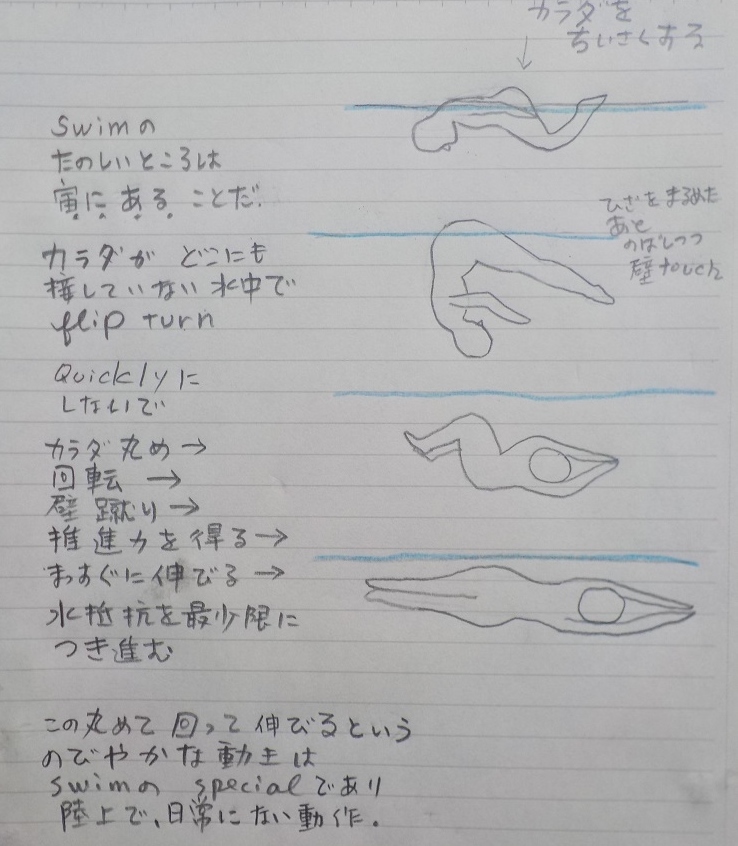 カラダを
ちいさくする
swimの
たのしいところは
宙にあることだ.
ひざをまるめた
あと
のばしつつ
壁touch
カラダが どこにも
接していない水中で
flip turn
Quicklyに
しないで
カラダ丸め→
回転 →
壁 蹴り→
推進力を得る→
まっすぐに伸びる→
水抵抗を最少限に
つき進む
この丸めて回って伸びるという
のびやかな動きは
swimの specialであり
陸上で、日常にない動作.